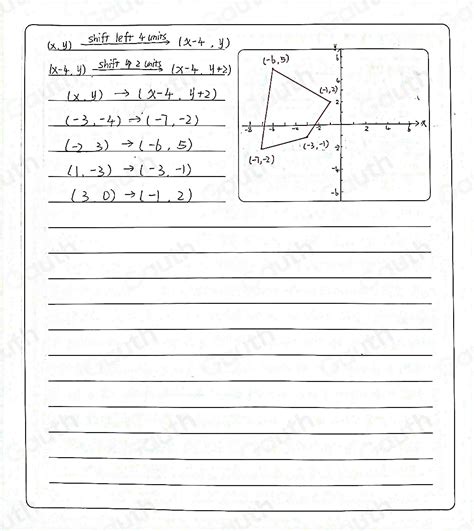 (x, y) shift left 4 units → (x-4, y)
(x-4, y) shift up 2 units → (x-4, y+2)
(x, y) → (x-4, y+2)
(-3, -4) → (-7, -2)
(-2, 3) → (-6, 5)
(1, -3) → (-3, -1)
(3, 0) → (-1, 2)
y
6
(-6, 5)
4
(-1, 2)
2
-8 -6 -4 -2 2 4 6 x
(-3, -1)
-2
(-7, -2)
-4
-6
Gauth